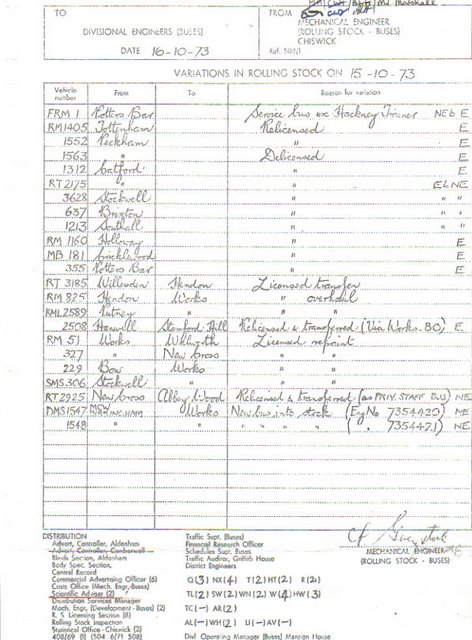 TO
FROM
DIVISIONAL ENGINEERS (BUSES)
MECHANICAL ENGINEER
(ROLLING STOCK - BUSES)
CHISWICK
DATE 16-10-73
Ref. 508/1
VARIATIONS IN ROLLING STOCK ON 15-10-73
Vehicle number From To Reason for variation
FRM 1 Potters Bar Service bus ex Hackney Trainer NE6 E
RM1405 Tottenham Relicensed E
1552 Peckham " E
1563 " Delicensed E
1312 Catford " E
RT2175 " " ELNE
3628 Stockwell " " "
637 Brixton " " "
1213 Southall " " "
RM 1160 Holloway " E
MB 181 Cricklewood " E
355 Potters Bar " E
RT 3185 Willesden Hendon Licensed transfer
RM 825 Hendon Works " overhaul
RML2589 Putney " " "
2508 Hanwell Stamford Hill Relicensed & transferred (Via Works. BC) E
RM 51 Works Walworth Licensed repaint
327 " New Cross " "
229 Bow Works " "
SMS.306 Stockwell " " "
RT2925 New Cross Abbey Wood Relicensed & transferred (as PRIV. STAFF BUS) NE
DMS1547 MCW BIRMINGHAM Works New bus into stock (Eng No 7354420) NE
1548 " " " " " " ( " 7354421) NE
DISTRIBUTION
Advert, Controller, Aldenham
Advert, Controller, Camberwell
Blinds Section, Aldenham
Body Spec. Section,
Central Record
Commercial Advertising Officer (6)
Costs Office (Mech. Engr-Buses)
Scientific Adviser (2)
Distribution Services Manager
Mech. Engr. (Development - Buses) (2)
R. S. Licensing Section (8)
Rolling Stock Inspection
Statistical Office - Chiswick (2)
408/69 (1) (504 6/71 508)
Traffic Supt. (Buses)
Financial Research Officer
Schedules Supt. Buses
Traffic Auditor, Griffith House
District Engineers
Q(3) NX(4) T(2) HT(2) R(2)
TL(2) SW(2) WN(2) W(4) HW(3)
TC(-) AR(2)
AL(-) WH(2) U(-) AV(-)
Divl. Operating Manager (Buses) Mansion House
MECHANICAL ENGINEER
(ROLLING STOCK - BUSES)